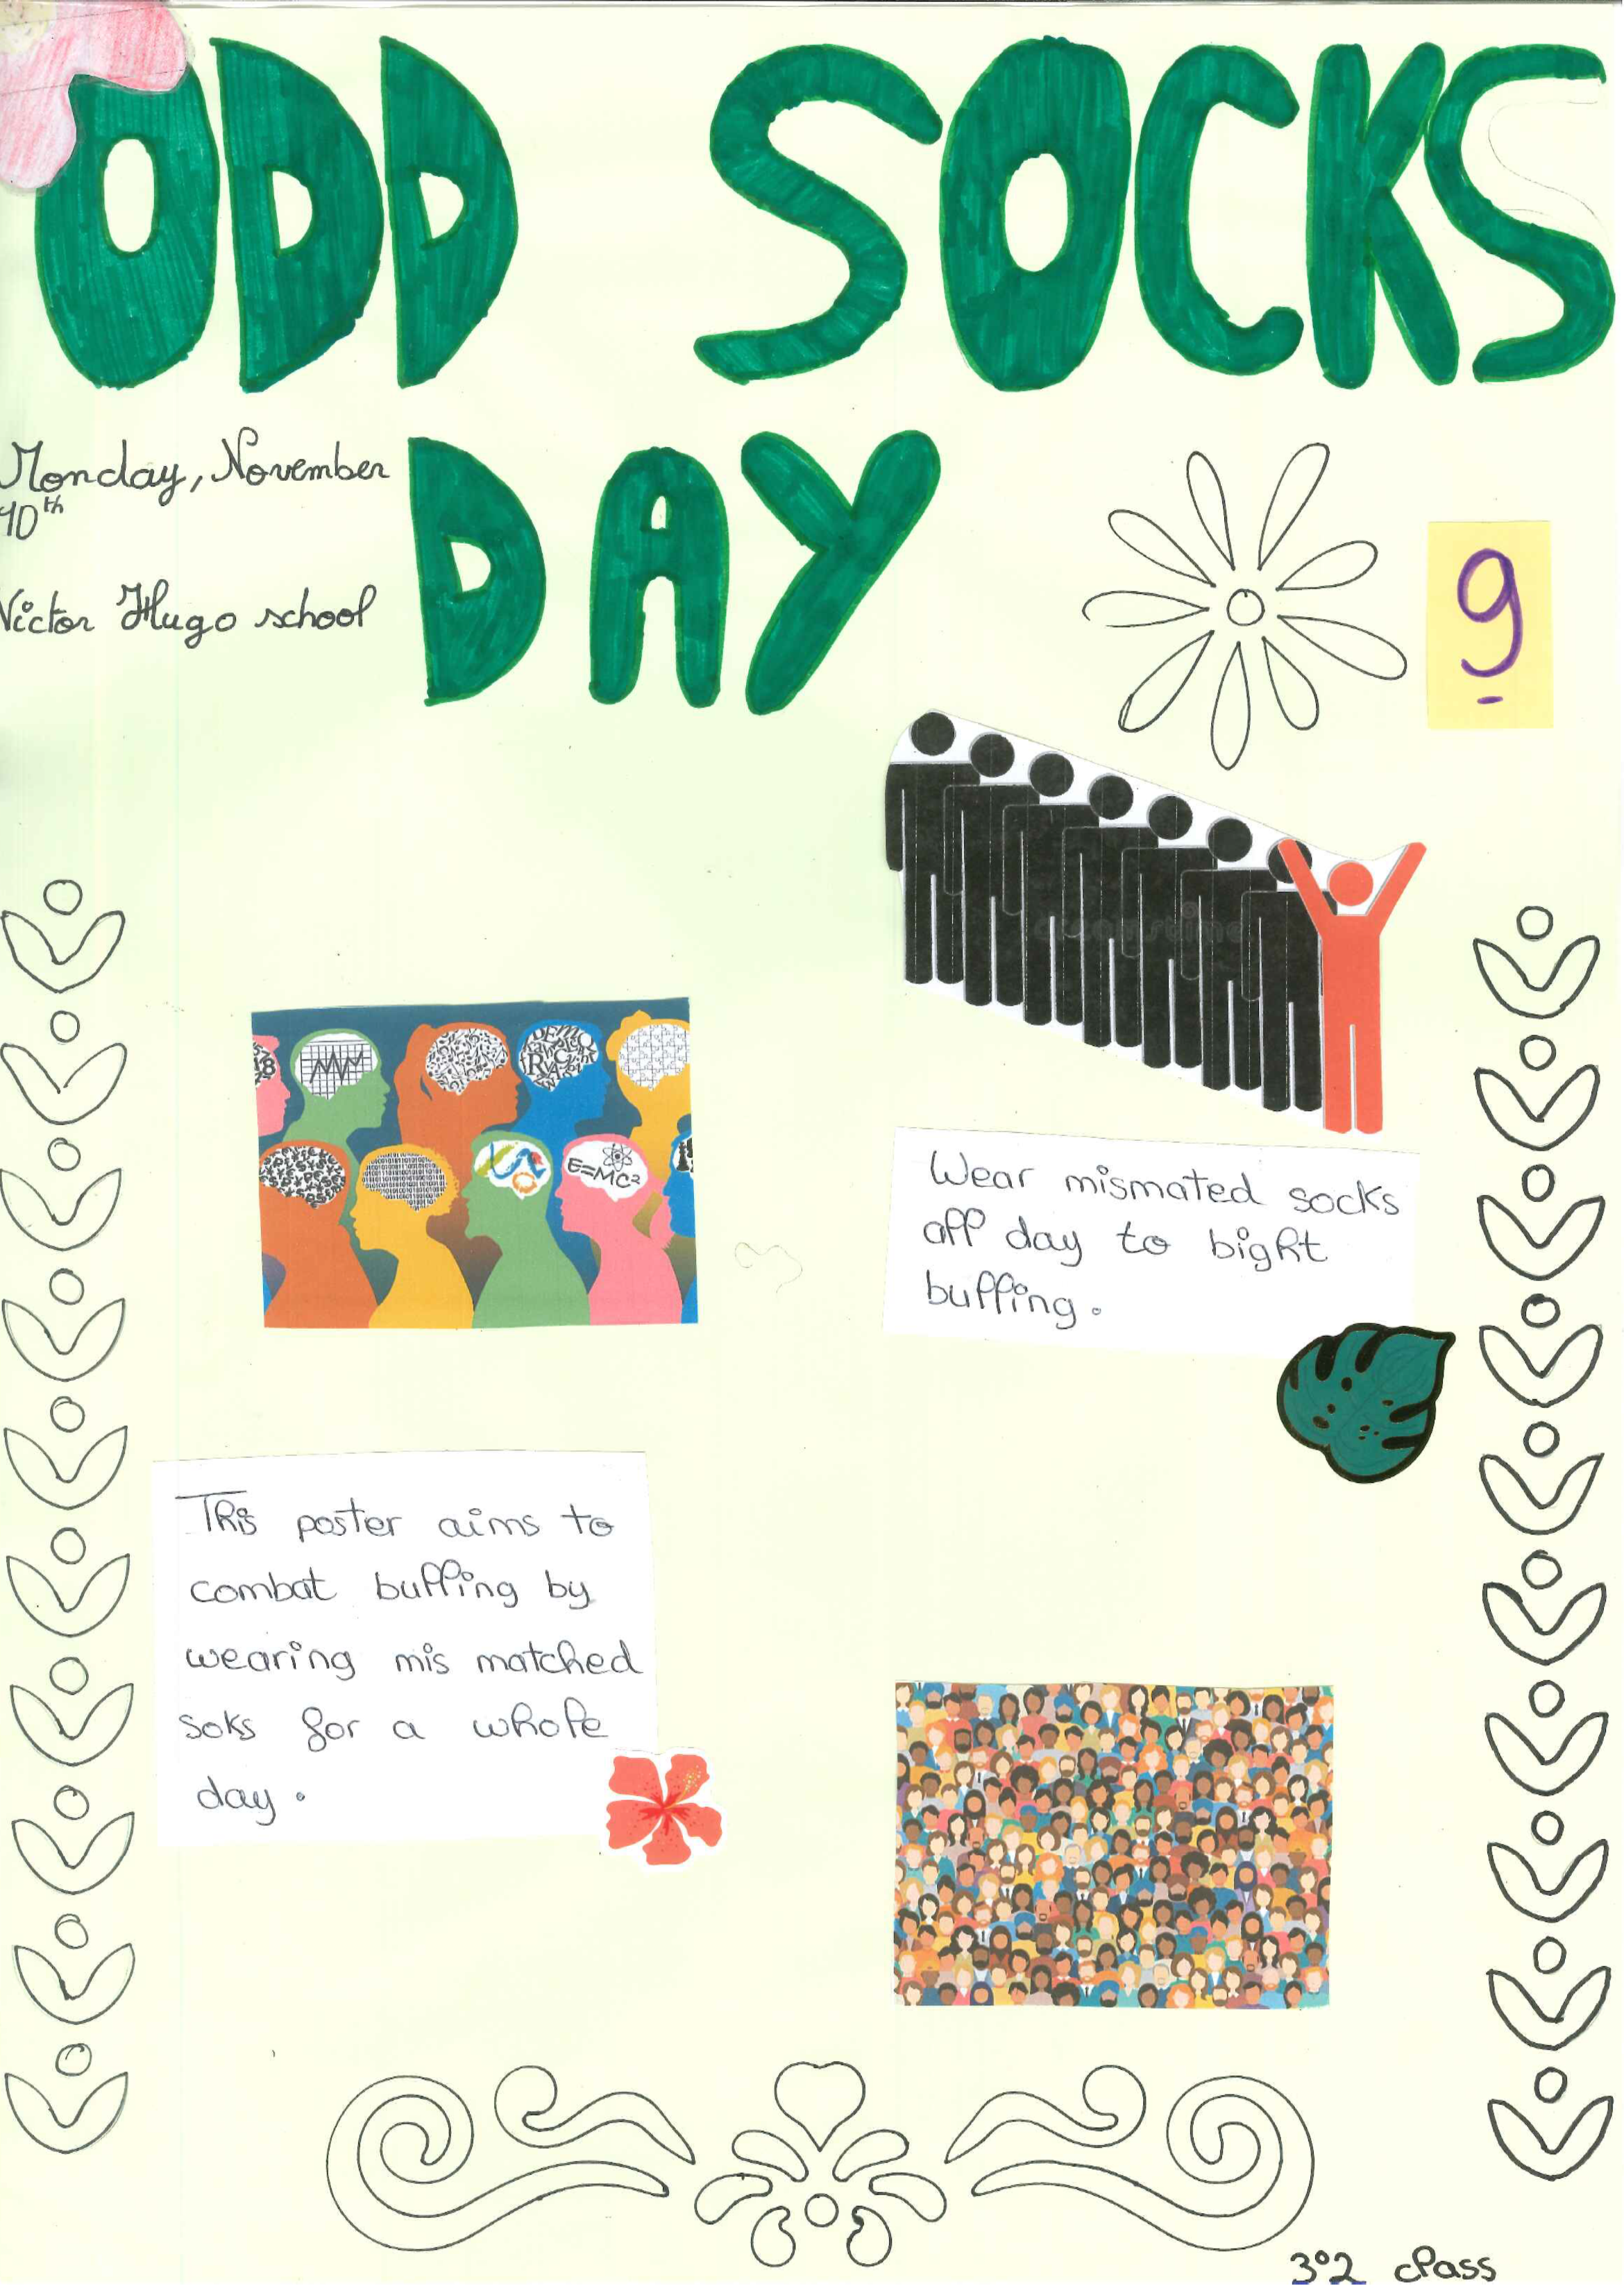 ODD SOCKS
DAY
Monday, November
10th
Victor Hugo school
9
18
DEMO
E=MC²
Wear mismated socks
all day to bight
bulling.
This poster aims to
combat bulling by
wearing mis matched
soks for a whole
day.
3°2 class